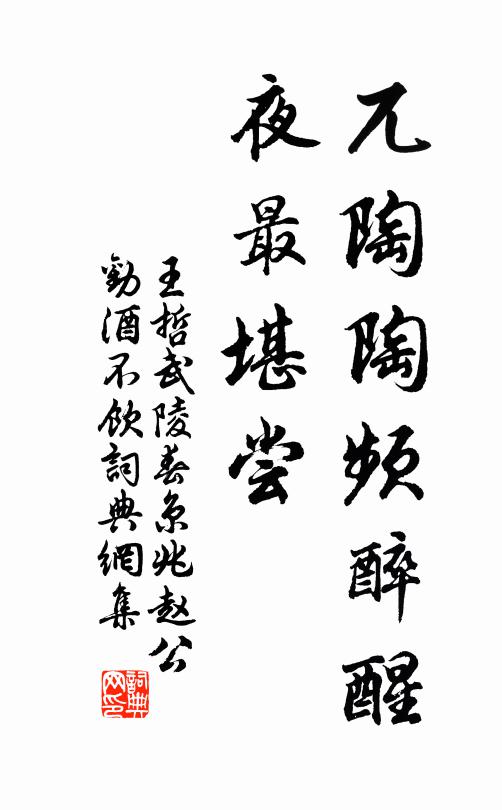 兀陶陶频醉醒
夜最堪尝
王哲武陵春京兆赵公
勸酒不饮詞典網集
詞典
网印